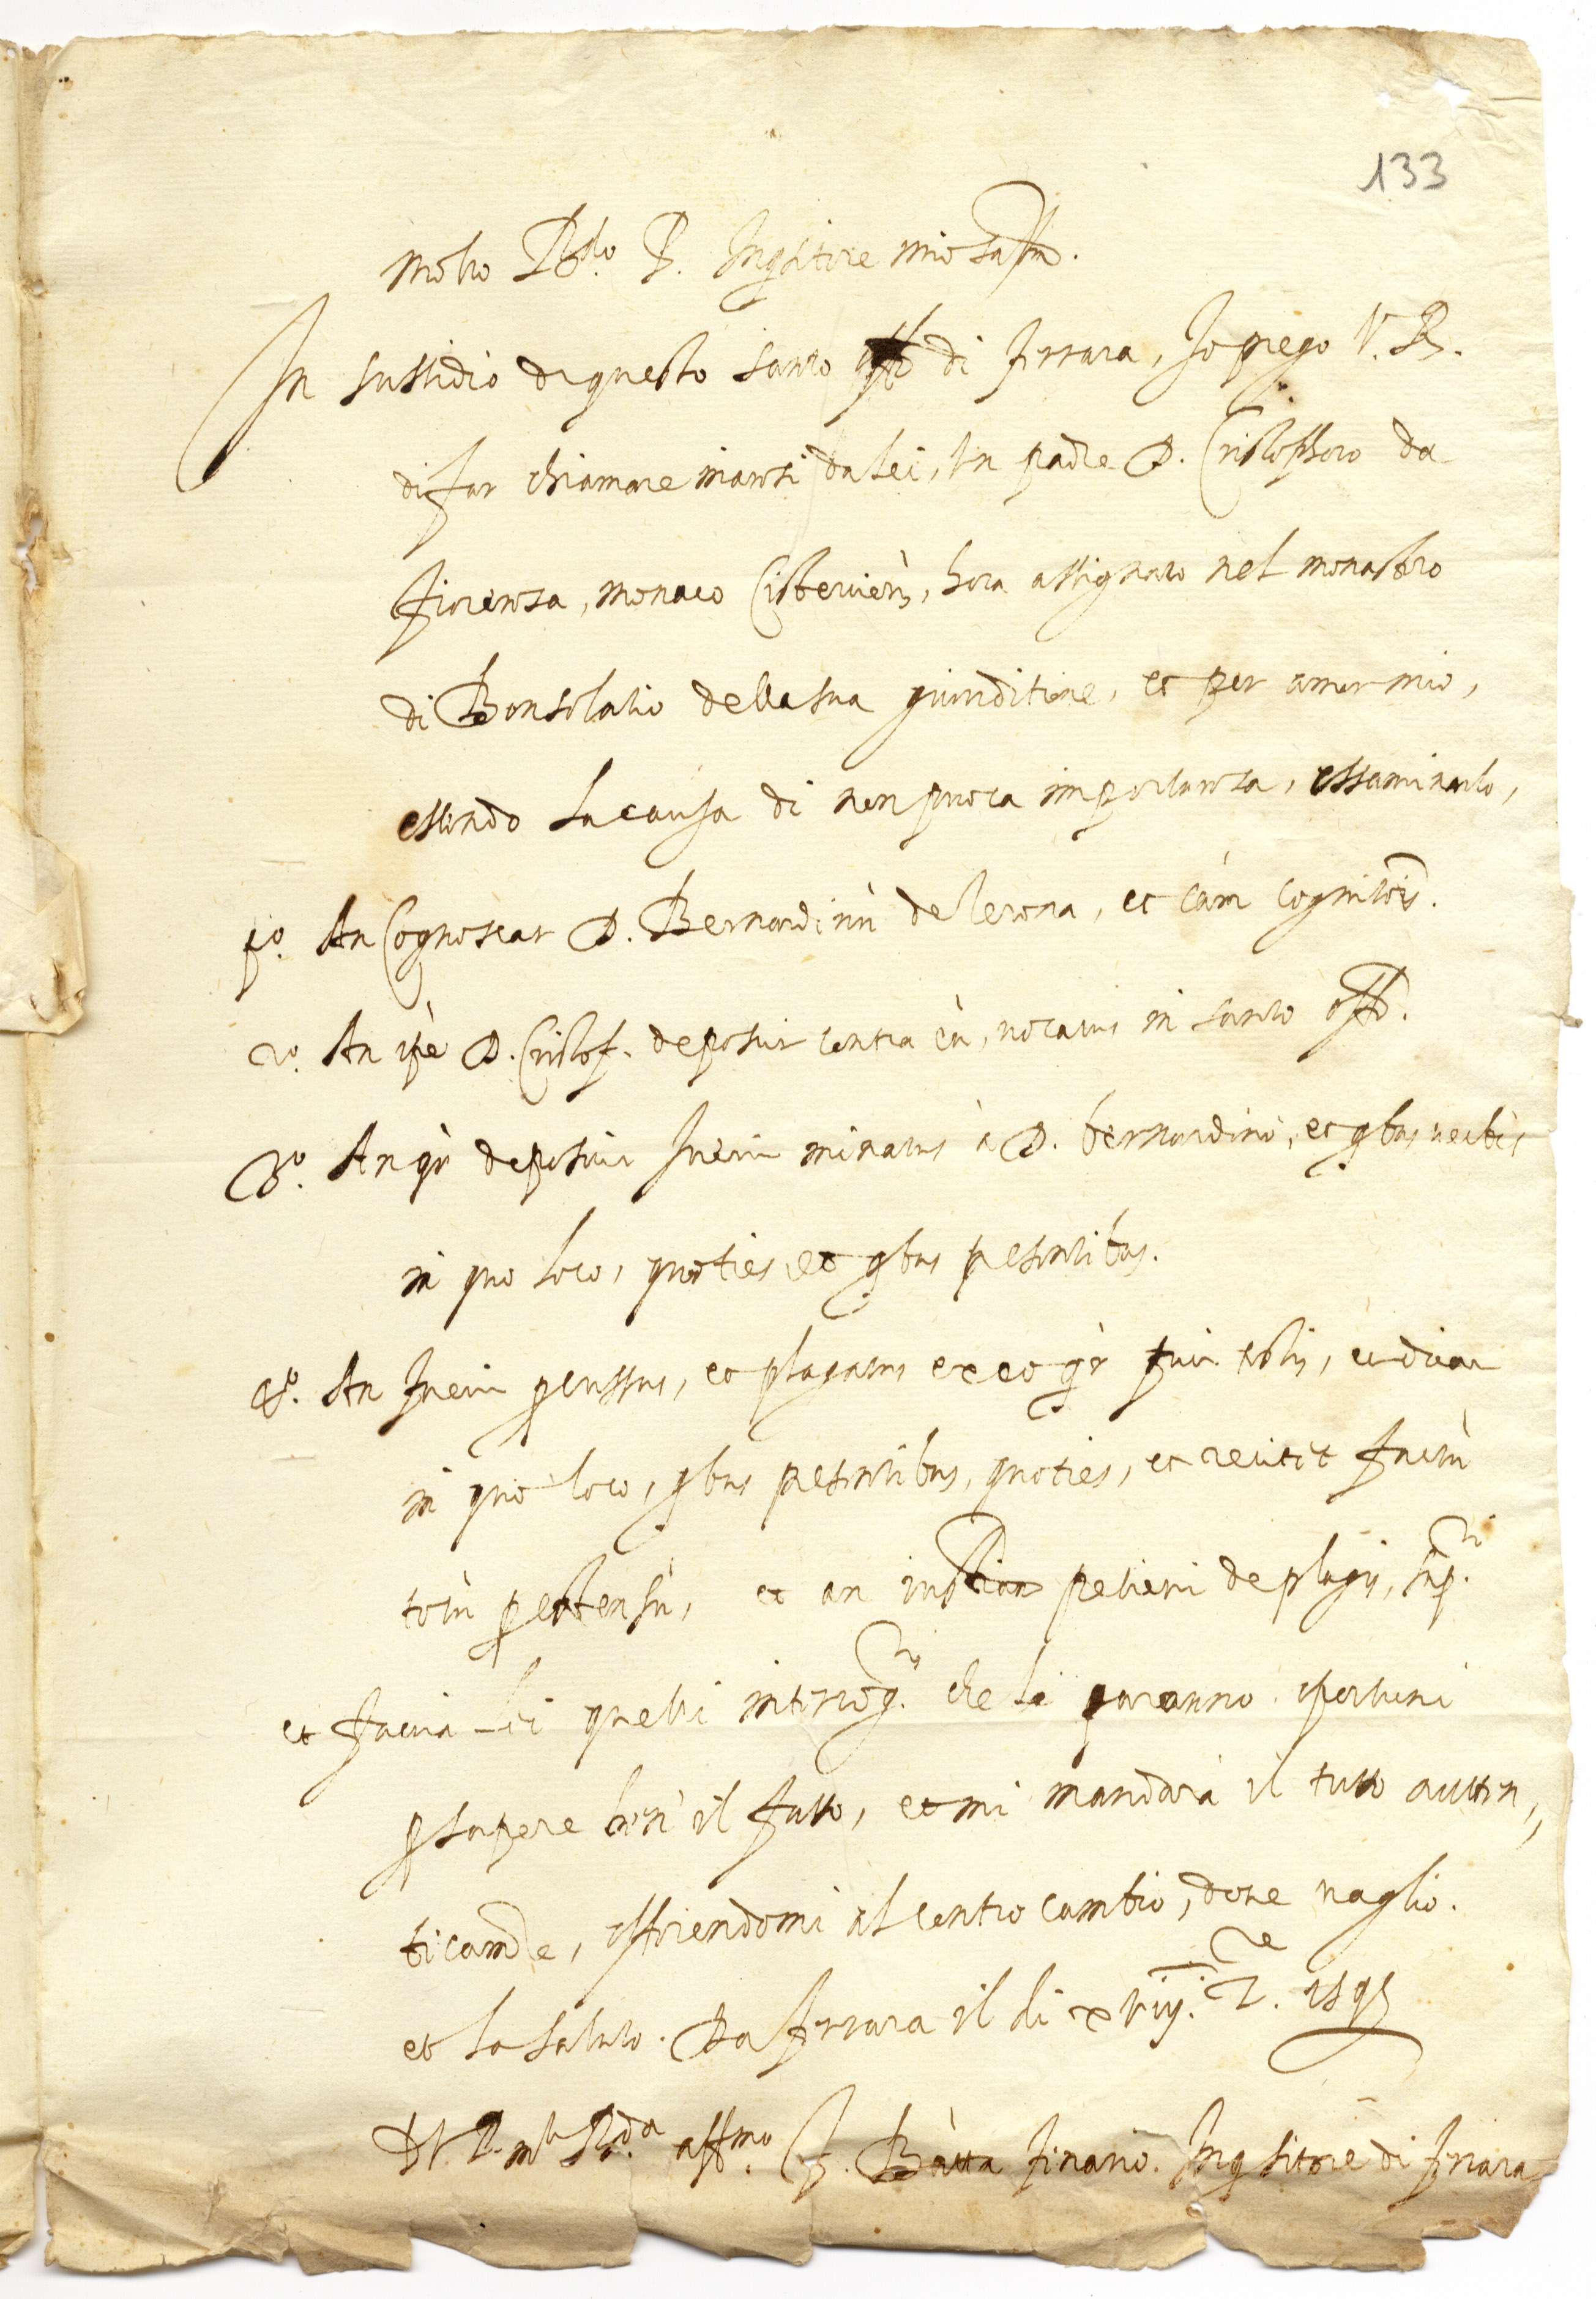 133
molto R.do P. Inqsitore mio
In sussidio di questo santo offo di ferrara, Io prego V. R.
di far chiamare inanzi da lei, un padre D. Cristophoro da
fiorenza, monaco Cisterciens, hora assignato nel monastro
di Bonsolatio della sua giurisditione, et per amor mio,
essendo la causa di non puoca importanza, essaminarlo,
po. An Cognoscat D. Bernardinù de Verona, et càm cognitois.
2o. An ipè D. Cristof. deposuit contra eù, vocatus in santo offo.
3o. An qù deposuit fuerit minatus à D. bernardino, et qbus verbis
in quo loco, quoties et qbus pesentibus.
4o. An fuerit pcussus, et plagatus ex eo qò fuit testis, et dicat
in quo loco, qbus pesentibus, quoties, et recitet factù
totù p extensù, et an petierit de plagis,
et faccia lei quelli interrog.ri che le paranno oportuni
p sapere ben il fatto, et mi mandarà il tutto autten,,
ticamte, offriendomi al contro cambio, dove vaglio.
et la saluto. Da ferrara il di xviij.
D. V. R. mlto R.da affmo. f. Batta finario. Inqsitore di ferara